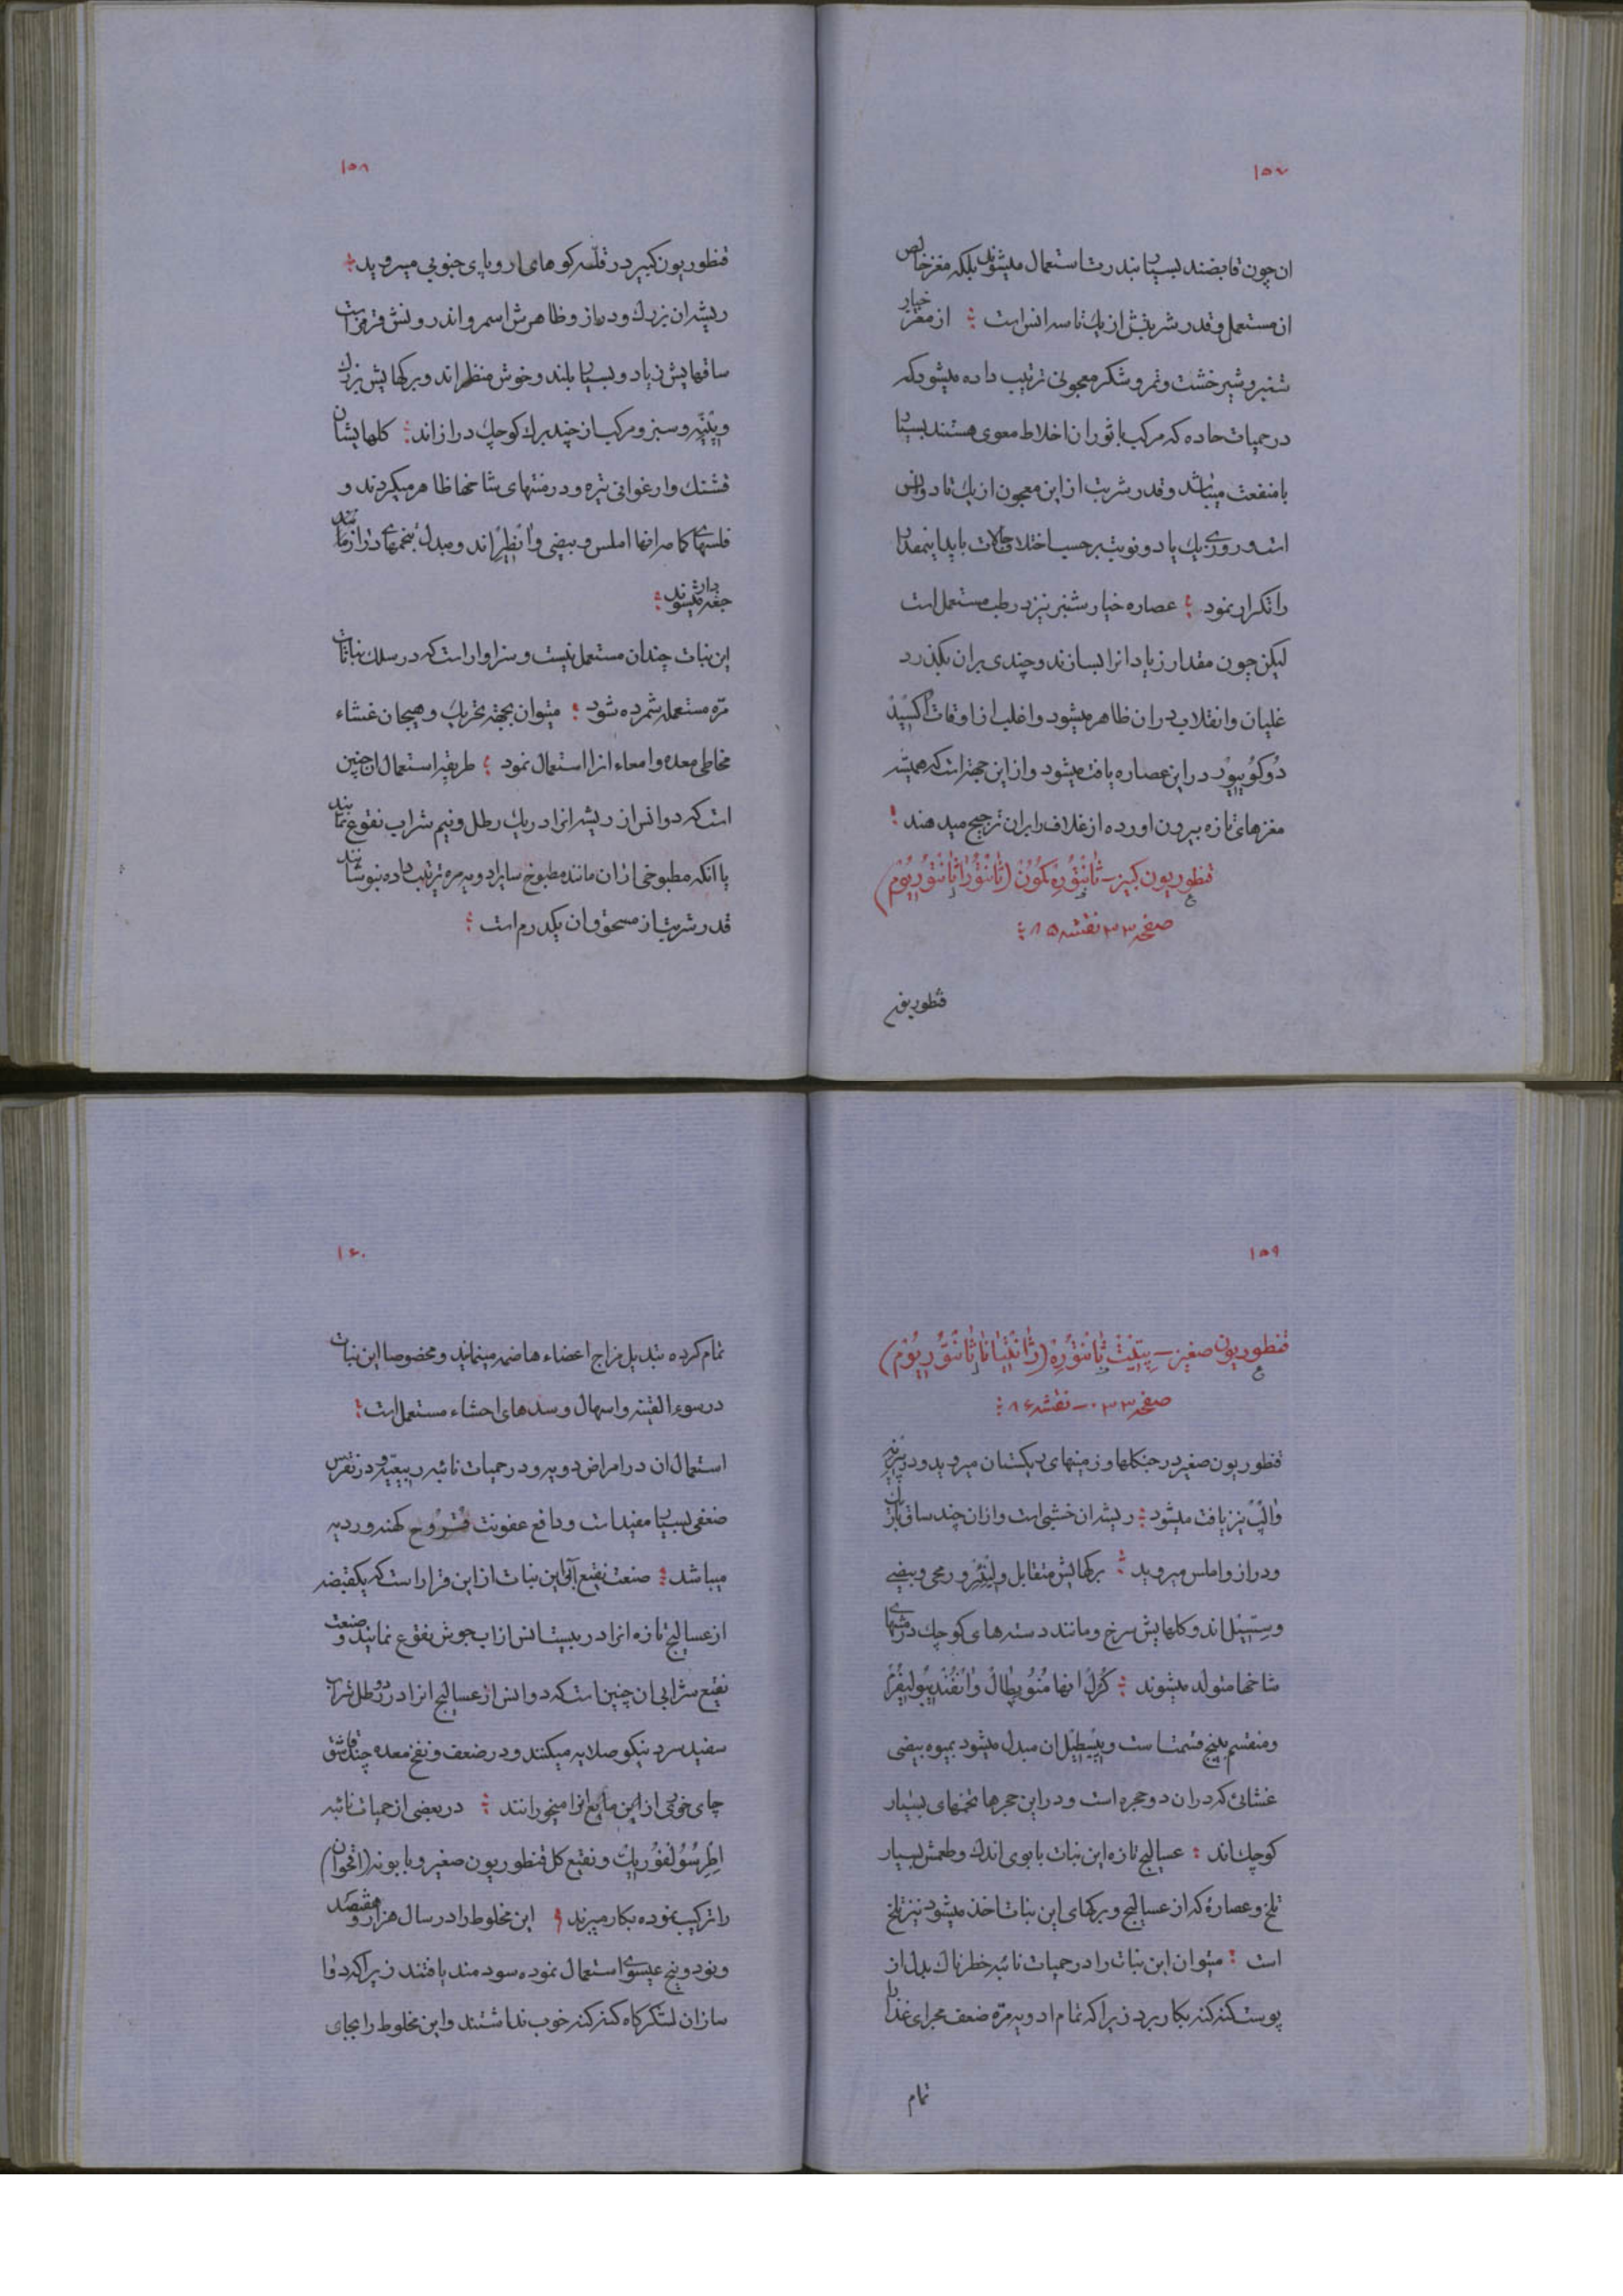 ۱۵۷
ان چون قابضند بسیار بندرت استعمال میشوند بلکه مغز خالص
ان مستعمل و قدر شربتش از یک تا سه انس است ؛ از مغز خیار
شنبر و شیرخشت و تمر و شکر معجونی ترتیب داده میشود که
در حمیات حاده که مرکب با ثوران اخلاط معوی هستند بسیار
با منفعت میباشد و قدر شربت از این معجون از یک تا دو انس
است و روزی یک یا دو نوبت بر حسب اختلاف حالات باید اینمقدار
را تکرار نمود ؛ عصاره خیار شنبر نیز در طب مستعمل است
لیکن چون مقدار زیاد انرا بسازند و چندی بران بگذرد
غلیان و انقلاب دران ظاهر میشود و اغلب از اوقات اُکسیدْ
دُوکُویوْرْ در این عصاره یافت میشود و از این جهت است که همیشه
مغزهای تازه بیرون اورده از غلاف را بران ترجیح میدهند ؛
قنطوریون کبیر ــ ثانتُورِه کمُونْ (ثانتُورا ثانتُوریُومْ)
صفحه ۳۳ نقشه ۸۵ ؛
قنطوریون
۱۵۸
قنطوریون کبیر در قلّه کوهای اروپای جنوبی میروید ؛
ریشه ان بزرک و دراز و ظاهرش اسمر و اندرونش قرمز است
ساقهایش زیاد و بسیار بلند و خوش منظر اند و برکهایش بزرک
و پنّیه و سبز و مرکب از چند برک کوچک دراز اند ؛ کلهایشان
قشنک و ارغوانی تیره و در منتهای شاخها ظاهر میکردند و
فلسهای کاسر انها املس و بیضی و انطِیْر اند و مبدل بتخمهای دراز مانند
جغه دار میشوند ؛
این نبات چندان مستعمل نیست و سزاوار است که در سلک نباتات
مرّه مستعمله شمرده شود ؛ میتوان بجهته تحریک و هیجان غشاء
مخاطی معده و امعاء انرا استعمال نمود ؛ طریقه استعمال ان چنین
است که دو انس از ریشه انرا در یک رطل و نیم شراب نقوع نمایند
یا انکه مطبوخی ازان مانند مطبوخ سایر ادویه مره ترتیب داده بنوشانند
قدر شربت از مسحوق ان یکدرم است ؛
۱۵۹
قنطوریون صغیر ــ پتیت ثانتُورِه (ژانتیانا ثانتُوریُومْ)
صفحه ۳۳ ــ نقشه ۸۶ ؛
قنطوریون صغیر در جنکلها و زمینهای ریکستان میروید و در پیرنه
و الپ نیز یافت میشود ؛ ریشه ان خشبی است و ازان چند ساق باریک
و دراز و املس میروید ؛ برکهایش متقابل و لِنیْئَر و رمحی و بیضی
و سِسّیل اند و کلهایش سرخ و مانند دسته های کوچک در منتهای
شاخها متولد میشوند ؛ کُرُلْ انها مُنُوپِطالْ و انفُندیبُولیفُرْمْ
و منقسم به پنج قسمت است و پیسطیل ان مبدل میشود بمیوه بیضی
غشائی که دران دو حجره است و در این حجرها تخمهای بسیار
کوچک اند ؛ عسالیج تازه این نبات با بوی اندک و طعمش بسیار
تلخ و عصارهٔ که از عسالیج و برکهای این نبات اخذ میشود نیز تلخ
است ؛ میتوان این نبات را در حمیات نائبه خطرناک بدل از
پوست کنه کنه بکار برد زیرا که تمام ادویه مرّه ضعف مجرای غذا را
تمام
۱۶۰
تمام کرده تبدیل مزاج اعضاء هاضمه مینمایند و مخصوصا این نبات
در سوء القنیه و اسهال و سدهای احشاء مستعمل است ؛
استعمال ان در امراض دویه و در حمیات نائبه ربیعیّه و در نقرس
ضعفی بسیار مفید است و دافع عفونت قروح کهنه و ردیه
میباشد ؛ صنعت نقیع آبی این نبات از این قرار است که یکقبضه
از عسالیج تازه انرا در بیست انس از اب جوش نقوع نمایند و صنعت
نقیع شرابی ان چنین است که دو انس از عسالیج انرا در دو رطل شراب
سفید سرد نیکو صلایه میکنند و در ضعف و نفخ معده چند قاشق
چای خوری از این مایع انرا میخورانند ؛ در بعضی از حمیات نائبه
اطرِسُولفُوریک و نقیع کل قنطوریون صغیر و بابونه (اقحوان)
را ترکیب نموده بکار میبرند ؛ این مخلوط را در سال هزار و هفتصد
و نود و پنج عیسوی استعمال نموده سودمند یافتند زیرا که دوا
سازان لشکرکاه کنه کنه خوب نداشتند و این مخلوط را بجای